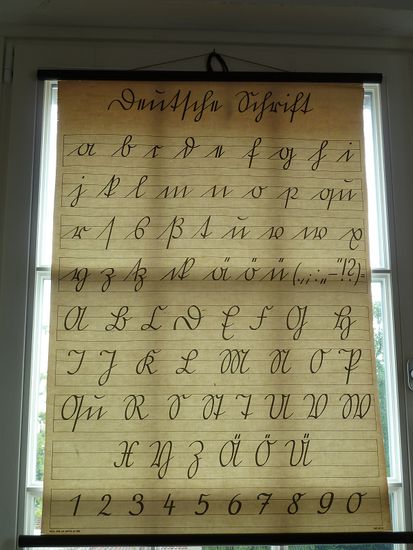 Deutsche Schrift
a b c d e f g h i
j k l m n o p qu
r ſ s ß t u v w x
y z tz ck ä ö ü (.,;:„-"!?)=
A B C D E F G H
I J K L M N O P
Qu R S St T U V W
X Y Z Ä Ö Ü
1 2 3 4 5 6 7 8 9 0